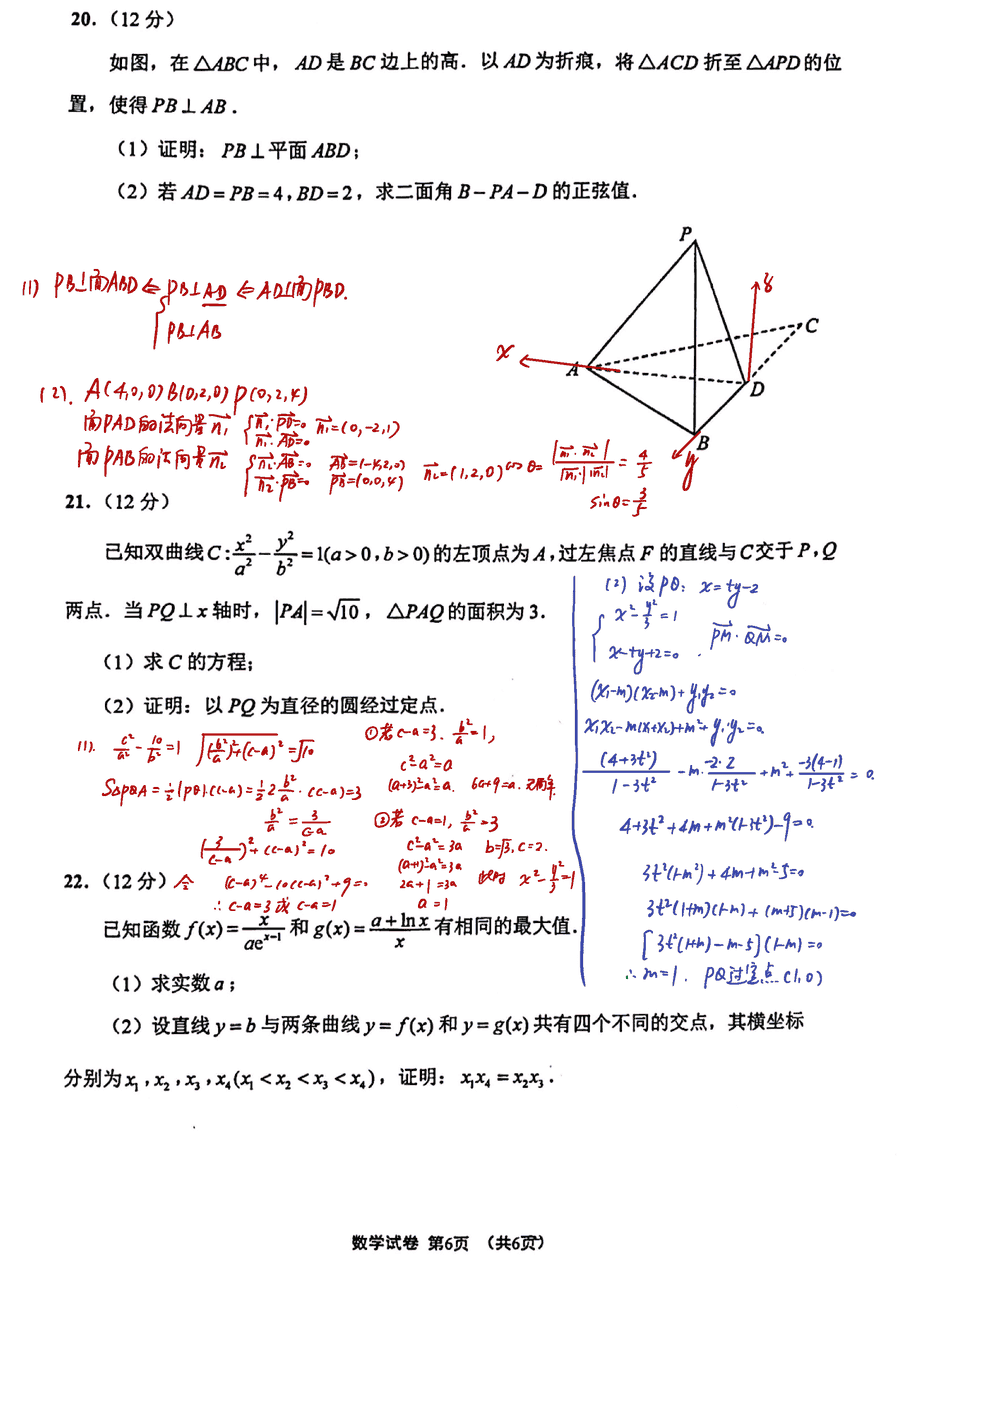 20. (12 分)
如图，在 △ABC 中， AD 是 BC 边上的高．以 AD 为折痕，将 △ACD 折至 △APD 的位
置，使得 PB⊥AB．
（1）证明： PB⊥平面 ABD；
（2）若 AD=PB=4,BD=2，求二面角 B-PA-D 的正弦值．
P
z
C
x
A
D
B
y
(1) PB⊥面ABD ⇐ { PB⊥AD ⇐ AD⊥面PBD.
PB⊥AB
(2). A(4,0,0) B(0,2,0) P(0,2,4)
面PAD的法向量 n₁ { n₁·PD=0 n₁·AD=0 n₁=(0,-2,1)
面PAB的法向量 n₂ { n₂·AB=0 AB=(-4,2,0)
n₂·PB=0 PB=(0,0,4) n₂=(1,2,0) cosθ= |n₁·n₂| / |n₁|·|n₂| = 4/5
sinθ=3/5
21. (12 分)
已知双曲线 C: x²/a² - y²/b² =1(a>0,b>0) 的左顶点为 A,过左焦点 F 的直线与 C 交于 P,Q
两点．当 PQ⊥x 轴时，|PA|=√10，△PAQ 的面积为 3．
（1）求 C 的方程；
（2）证明：以 PQ 为直径的圆经过定点．
(1). c²/a² - 10/b² =1 √((b²/a)²+(c-a)²) =√10
S△PQA = 1/2|PQ|·(c-a)= 1/2·2 b²/a ·(c-a)=3
b²/a = 3/(c-a)
(3/(c-a))²+(c-a)²=10
令 (c-a)⁴-10(c-a)²+9=0
∴ c-a=3 或 c-a=1
①若 c-a=3. b²/a=1,
c²-a²=a
(a+3)²-a²=a. 6a+9=a. 无解舍
②若 c-a=1, b²/a=3
c²-a²=3a b=√3, c=2.
(a+1)²-a²=3a
2a+1=3a 此时 x²-y²/3=1
a=1
(2) 设PQ: x=ty-2
{ x²-y²/3=1
x-ty+2=0 . PM·QM=0
(x₁-m)(x₂-m)+y₁y₂=0
x₁x₂-m(x₁+x₂)+m²+y₁y₂=0
(4+3t²)/(1-3t²) -m· -2·2/(1-3t²) +m²+ -3(4-1)/(1-3t²) =0.
4+3t²+4m+m²(1-3t²)-9=0.
3t²(1-m²)+4m+m²-5=0
3t²(1+m)(1-m)+(m+5)(m-1)=0
[3t²(1+m)-m-5](1-m)=0
∴ m=1. PQ过定点(1,0)
22. (12 分)
已知函数 f(x)= x/(ae^(x-1)) 和 g(x)= (a+ln x)/x 有相同的最大值．
（1）求实数 a；
（2）设直线 y=b 与两条曲线 y=f(x) 和 y=g(x) 共有四个不同的交点，其横坐标
分别为 x₁,x₂,x₃,x₄(x₁<x₂<x₃<x₄)，证明：x₁x₄=x₂x₃．
数学试卷 第6页 （共6页）